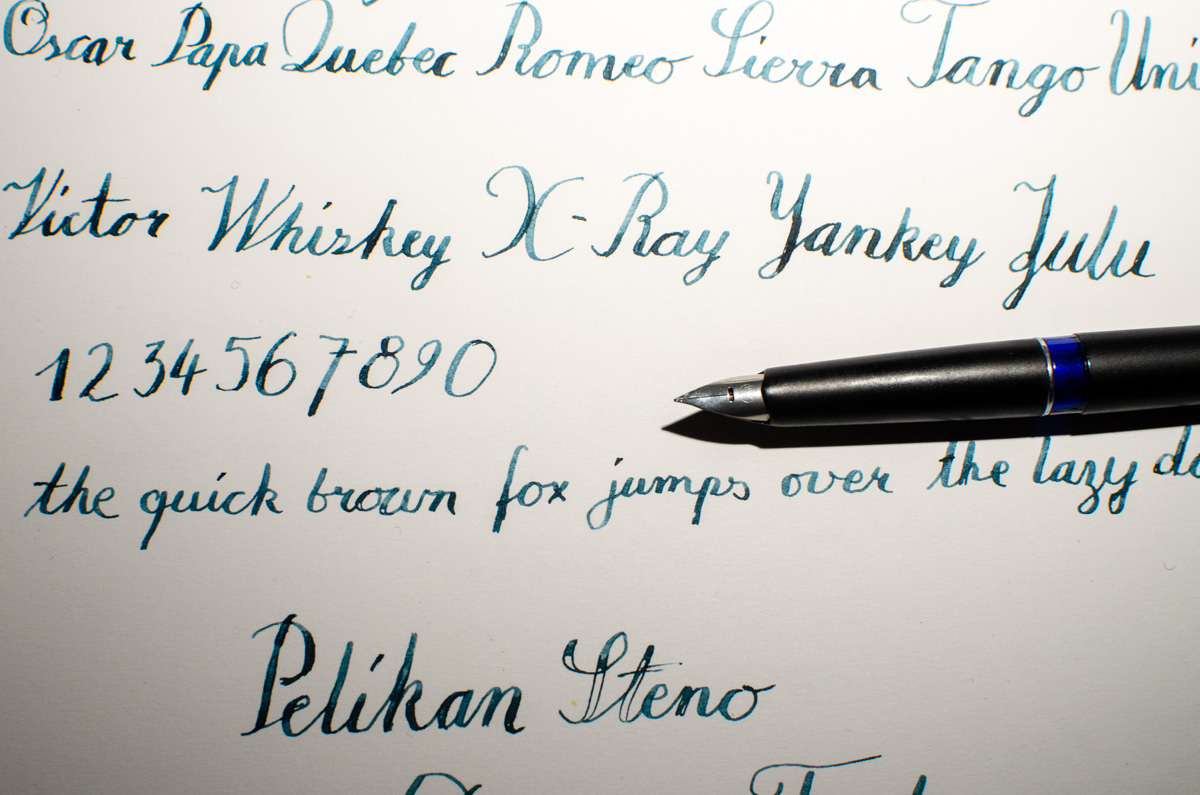 Oscar Papa Quebec Romeo Sierra Tango Uni
Victor Whiskey X-Ray Yankey Zulu
1234567890
the quick brown fox jumps over the lazy do
Pelikan Steno